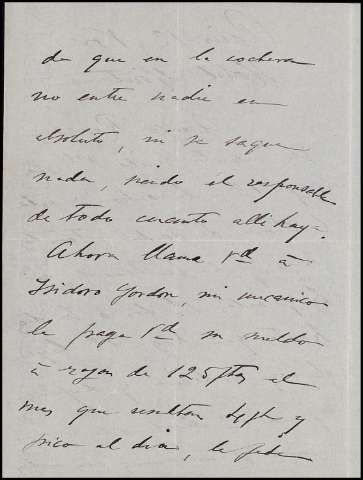 de que en la cochera
no entre nadie en
absoluto, ni se saque
nada, siendo el responsable
de todo cuanto allí hay.
Ahora llama Vd á
Isidoro Gordon, mi mecanico
le paga Vd su sueldo
á razon de 125 ptas al
mes que resultan 4 pts y
pico al dia, le